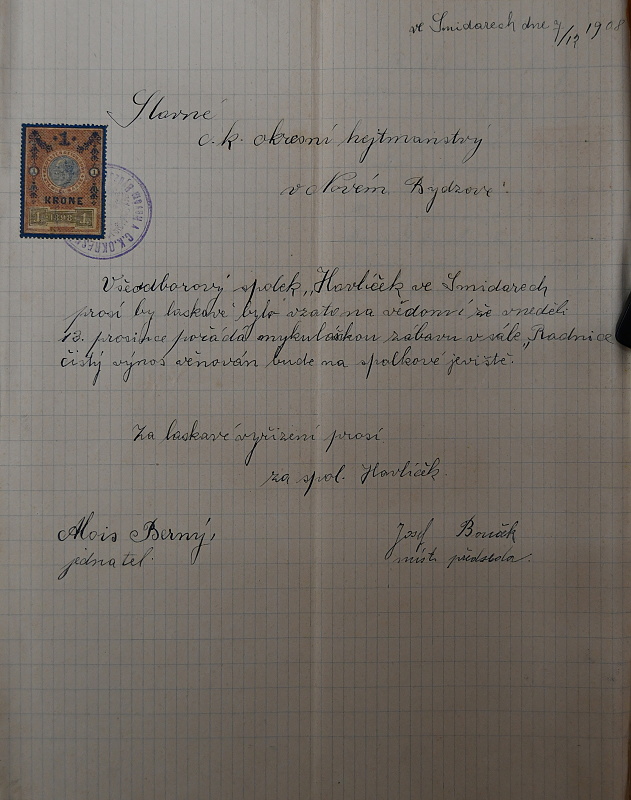 ve Smidarech dne 9/12 1908
Slavné
c. k. okresní hejtmanstvý
v Novém Bydzově!
1
1 1
KRONE
1 1898 1
C.K. OKRES
Všeodborový spolek „Havlíček ve Smidarech
prosí by laskavě bylo vzato na vědomí že vneděli
13. prosince pořádá mykulaškou zábavu v sále „Radnice
čistý výnos věnován bude na spolkové jeviště.
Za laskavé vyřízení prosí
za spol. Havlíček.
Alois Berný,
jednatel.
Josef Bouček
místr. předseda.